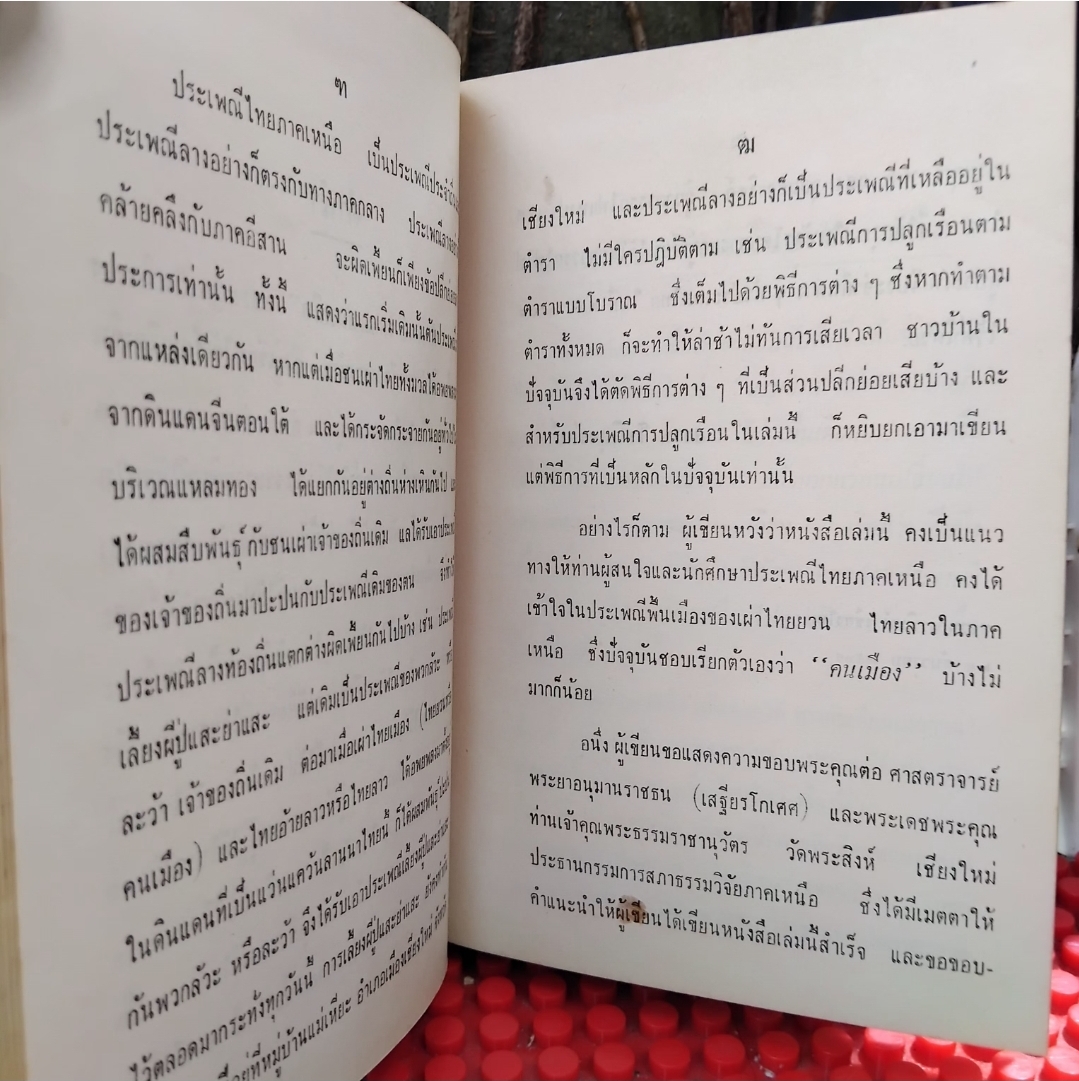 ฑ
ประเพณีไทยภาคเหนือ เป็นประเพณีประจำ
ประเพณีลางอย่างก็ตรงกับทางภาคกลาง ประเพณีลาง
คล้ายคลึงกับภาคอีสาน จะผิดเพี้ยนก็เพียงข้อปลีกย่อย
ประการเท่านั้น ทั้งนี้ แสดงว่าแรกเริ่มเดิมนั้นต้นประเพณี
จากแหล่งเดียวกัน หากแต่เมื่อชนเผ่าไทยทั้งมวลได้อพยพ
จากดินแดนจีนตอนใต้ และได้กระจัดกระจายกันอยู่ทั่วไป
บริเวณแหลมทอง ได้แยกกันอยู่ต่างถิ่นห่างเหินกันไป
ได้ผสมสืบพันธุ์ กับชนเผ่าเจ้าของถิ่นเดิม แลได้รับเอาประเพณี
ของเจ้าของถิ่นมาปะปนกับประเพณีเดิมของตน จึงทำ
ประเพณีลางท้องถิ่นแตกต่างผิดเพี้ยนกันไปบ้าง เช่น ประเพณี
เลี้ยงผีปู่แสะย่าแสะ แต่เดิมเป็นประเพณีของพวกลัวะ หรือ
ละว้า เจ้าของถิ่นเดิม ต่อมาเมื่อเผ่าไทยเมือง (ไทยยวนหรือ
คนเมือง) และไทยอ้ายลาวหรือไทยลาว ได้อพยพลงมาตั้งอยู่
ในดินแดนที่เป็นแว่นแคว้นลานนาไทยนี้ ก็ได้ผสมพันธุ์
กันพวกลัวะ หรือละว้า จึงได้รับเอาประเพณีเลี้ยงผีปู่แสะย่าแสะ
ไว้ตลอดมากระทั่งทุกวันนี้ การเลี้ยงผีปู่แสะย่าแสะ ยังคงทำกัน
อยู่ที่หมู่บ้านแม่เหียะ อำเภอเมืองเชียงใหม่
ฒ
เชียงใหม่ และประเพณีลางอย่างก็เป็นประเพณีที่เหลืออยู่ใน
ตำรา ไม่มีใครปฏิบัติตาม เช่น ประเพณีการปลูกเรือนตาม
ตำราแบบโบราณ ซึ่งเต็มไปด้วยพิธีการต่าง ๆ ซึ่งหากทำตาม
ตำราทั้งหมด ก็จะทำให้ล่าช้าไม่ทันการเสียเวลา ชาวบ้านใน
ปัจจุบันจึงได้ตัดพิธีการต่าง ๆ ที่เป็นส่วนปลีกย่อยเสียบ้าง และ
สำหรับประเพณีการปลูกเรือนในเล่มนี้ ก็หยิบยกเอามาเขียน
แต่พิธีการที่เป็นหลักในปัจจุบันเท่านั้น
อย่างไรก็ตาม ผู้เขียนหวังว่าหนังสือเล่มนี้ คงเป็นแนว
ทางให้ท่านผู้สนใจและนักศึกษาประเพณีไทยภาคเหนือ คงได้
เข้าใจในประเพณีพื้นเมืองของเผ่าไทยยวน ไทยลาวในภาค
เหนือ ซึ่งปัจจุบันชอบเรียกตัวเองว่า “คนเมือง” บ้างไม่
มากก็น้อย
อนึ่ง ผู้เขียนขอแสดงความขอบพระคุณต่อ ศาสตราจารย์
พระยาอนุมานราชธน (เสฐียรโกเศศ) และพระเดชพระคุณ
ท่านเจ้าคุณพระธรรมราชานุวัตร วัดพระสิงห์ เชียงใหม่
ประธานกรรมการสภาธรรมวิจัยภาคเหนือ ซึ่งได้มีเมตตาให้
คำแนะนำให้ผู้เขียนได้เขียนหนังสือเล่มนี้สำเร็จ และขอขอบ-